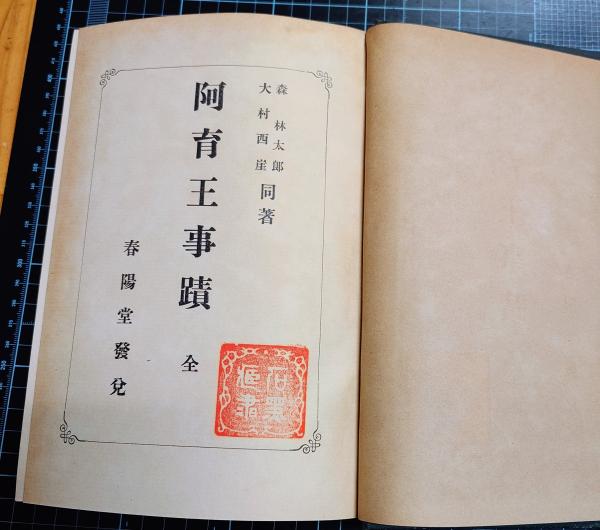 森林太郎
大村西崖
同著
阿育王事蹟 全
春陽堂發兌